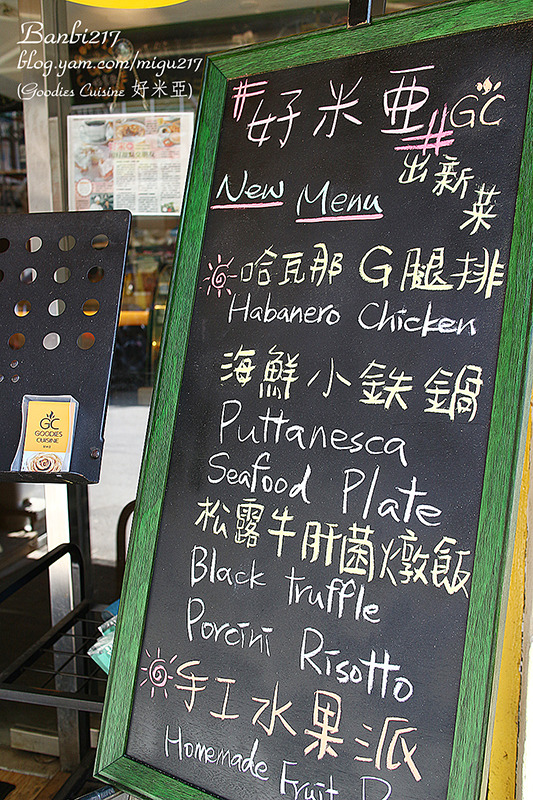 Banbi217
blog.yam.com/migu217
(Goodies Cuisine 好米亞)
#好米亞#
GC
出新菜
New Menu
哈瓦那G腿排
Habanero Chicken
海鮮小鉄鍋
Puttanesca
Seafood Plate
松露牛肝菌燉飯
Black truffle
Porcini Risotto
手工水果派
Homemade Fruit P
GC
GOODIES
CUISINE